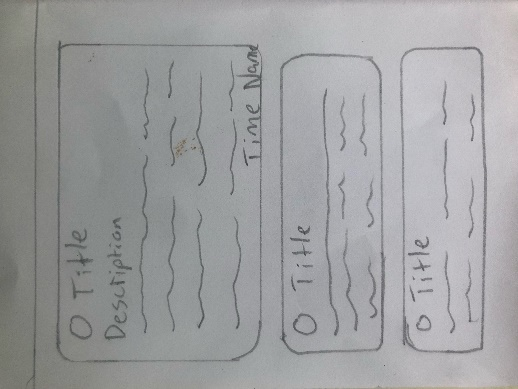 O Title
Description
Time Name
O Title
O Title